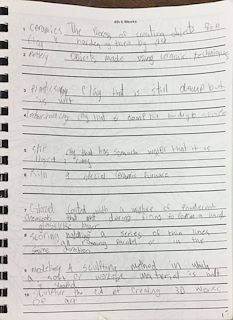 4th 6 Weeks
1 ceramics The process of creating objects from
clay & hardening them by fire
2 Pottery Objects made using ceramic techniques
3 Plasticity Clay that is still damp but
is
4 clay that is damp but
5 slip clay that has so much water that it is
liquid & runny
6 Kiln A special ceramic furnace
7 Glazed Coated with a mixture of powdered
that melt during firing to form a hard
glasslike layer
8 Scoring a series of thin lines
all running parallel or in the
same direction
9 modeling A sculpting method in which
a soft or workable material is built
& shaped
10 the art of creating 3D works
of art